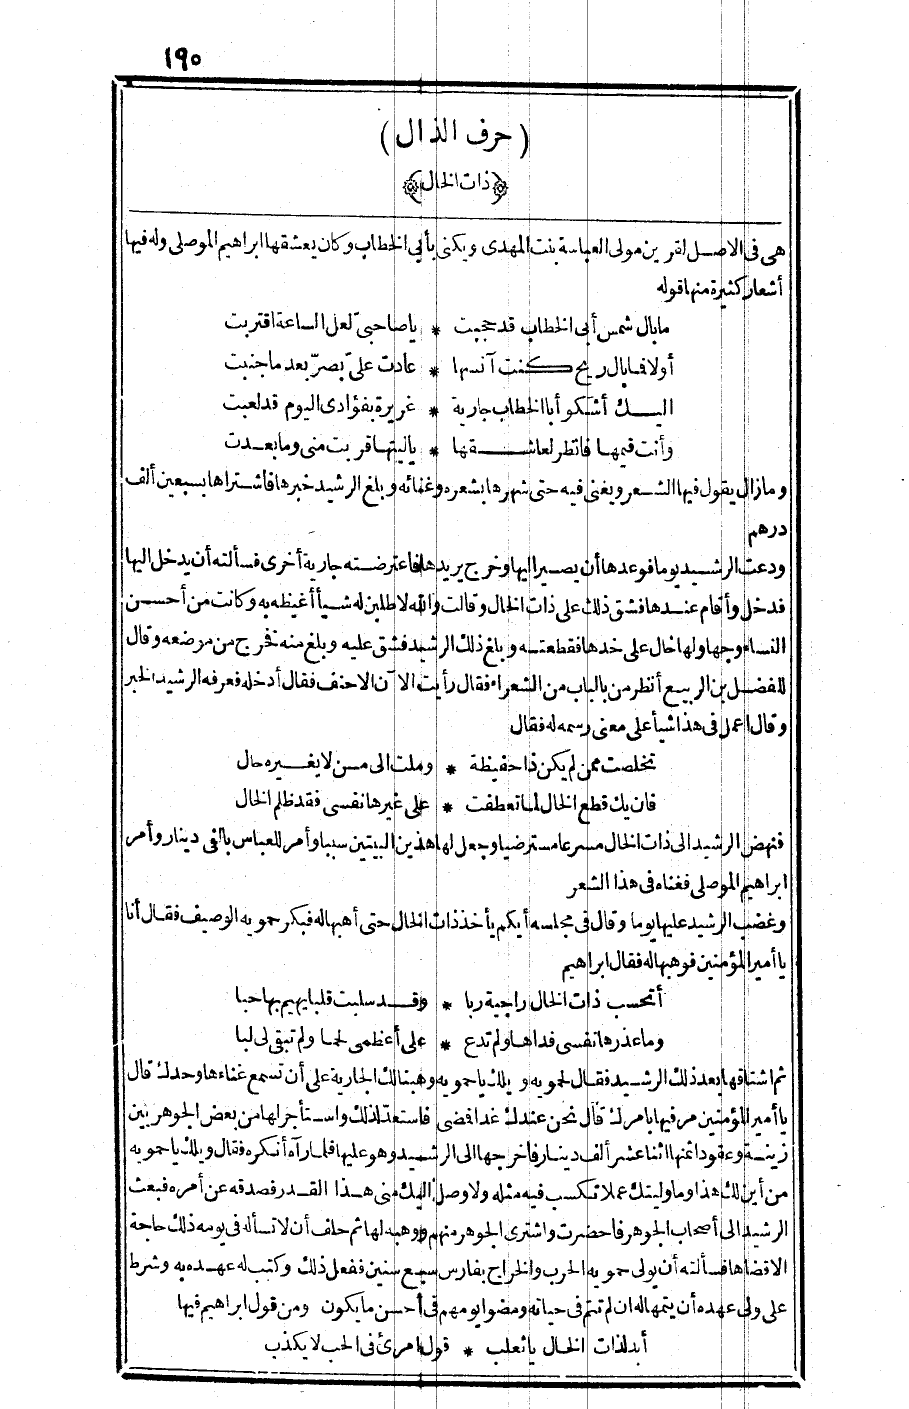 ١٩٠
(حرف الذال)
﴿ذات الخال﴾
هى فى الاصل لقرين مولى العباسة بنت المهدى ويكنى بأبى الخطاب وكان يعشقها ابراهيم الموصلى وله فيها
أشعار كثيرة منها قوله
مابال شمس أبى الخطاب قد حجبت * ياصاحبىّ لعل الساعة اقتربت
أولا فما بال ريح كنت آنسها * عادت علىّ بصرّ بعد ما جنبت
اليك أشكو أبا الخطاب جارية * غريرة بفؤادى اليوم قد لعبت
وأنت قيمها فانظر لعاشقها * ياليتها قربت منى وما بعدت
ومازال يقول فيها الشعر ويغنى فيه حتى شهرها بشعره وغنائه وبلغ الرشيد خبرها فاشتراها بسبعين ألف
درهم
ودعت الرشيد يوما فوعدها أن يصير اليها وخرج يريدها فاعترضته جارية أخرى فسألته أن يدخل اليها
فدخل وأقام عندها فشق ذلك على ذات الخال وقالت والله لاطلبن له شيأ أغيظه به وكانت من أحسن
النساء وجها ولها خال على خدها فقطعته وبلغ ذلك الرشيد فشق عليه وبلغ منه فخرج من موضعه وقال
للفضل بن الربيع أنظر من بالباب من الشعراء فقال رأيت الآن الاحنف فقال أدخله فعرفه الرشيد الخبر
وقال اعمل فى هذا شيأ على معنى رسمه له فقال
تخلصت ممن لم يكن ذا حفيظة * وملت الى من لا يغيره حال
فان يك قطع الخال لما تعطفت * على غيرها نفسى فقد ظلم الخال
فنهض الرشيد الى ذات الخال مسرعا مسترضيا وجعل لها هذين البيتين سببا وأمر للعباس بالفى دينار وأمر
ابراهيم الموصلى فغناه فى هذا الشعر
وغضب الرشيد عليها يوما وقال فى مجلسه أيكم يأخذ ذات الخال حتى أهبها له فبكر حمويه الوصيف فقال أنا
يا أمير المؤمنين فوهبها له فقال ابراهيم
أتحسب ذات الخال راجية ربا * وقد سلبت قلبا يهيم بها حبا
وما عذرها نفسى فداها ولم تدع * على أعظمى لحما ولم تبقى لى لبا
ثم اشتاقها بعد ذلك الرشيد فقال لحمويه ويلك يا حمويه وهبنا لك الجارية على أن تسمع غناءها وحدك قال
يا أمير المؤمنين مر فيها بامرك قال نحن عندك غدا فمضى فاستعد لذلك واستأجر لها من بعض الجوهريين
زينة وعقودا ثمنها اثنا عشر ألف دينار فأخرجها الى الرشيد وهو عليها فلما رآه أنكره فقال ويلك يا حمويه
من أين لك هذا وما وليتك عملا تكسب فيه مثله ولا وصل اليك منى هذا القدر فصدقه عن أمره فبعث
الرشيد الى أصحاب الجوهر فاحضرت واشترى الجوهر منهم ووهبه لها ثم حلف أن لا تسأله فى يومه ذلك حاجة
الا قضاها فسألته أن يولى حمويه الحرب والخراج بفارس سبع سنين ففعل ذلك وكتب له عهده به وشرط
على ولى عهده أن يتمها له ان لم تتم فى حياته ومضوا يومهم فى أحسن ما يكون ومن قول ابراهيم فيها
أبد لذات الخال يا ثعلب * قول امرئ فى الحب لا يكذب